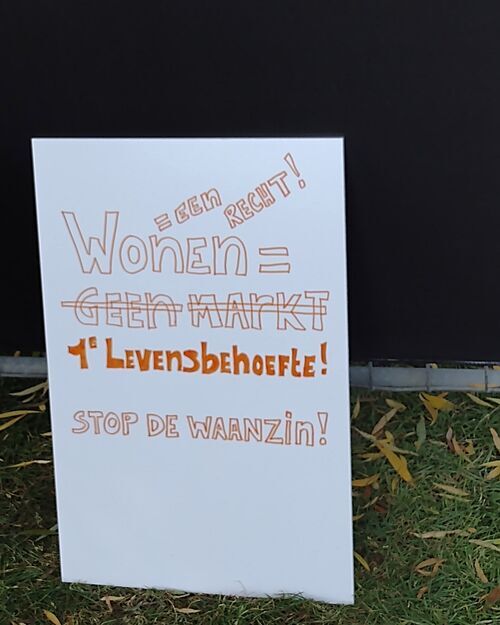 = EEN RECHT!
WONEN =
GEEN MARKT
1e LEVENSBEHOEFTE!
STOP DE WAANZIN!